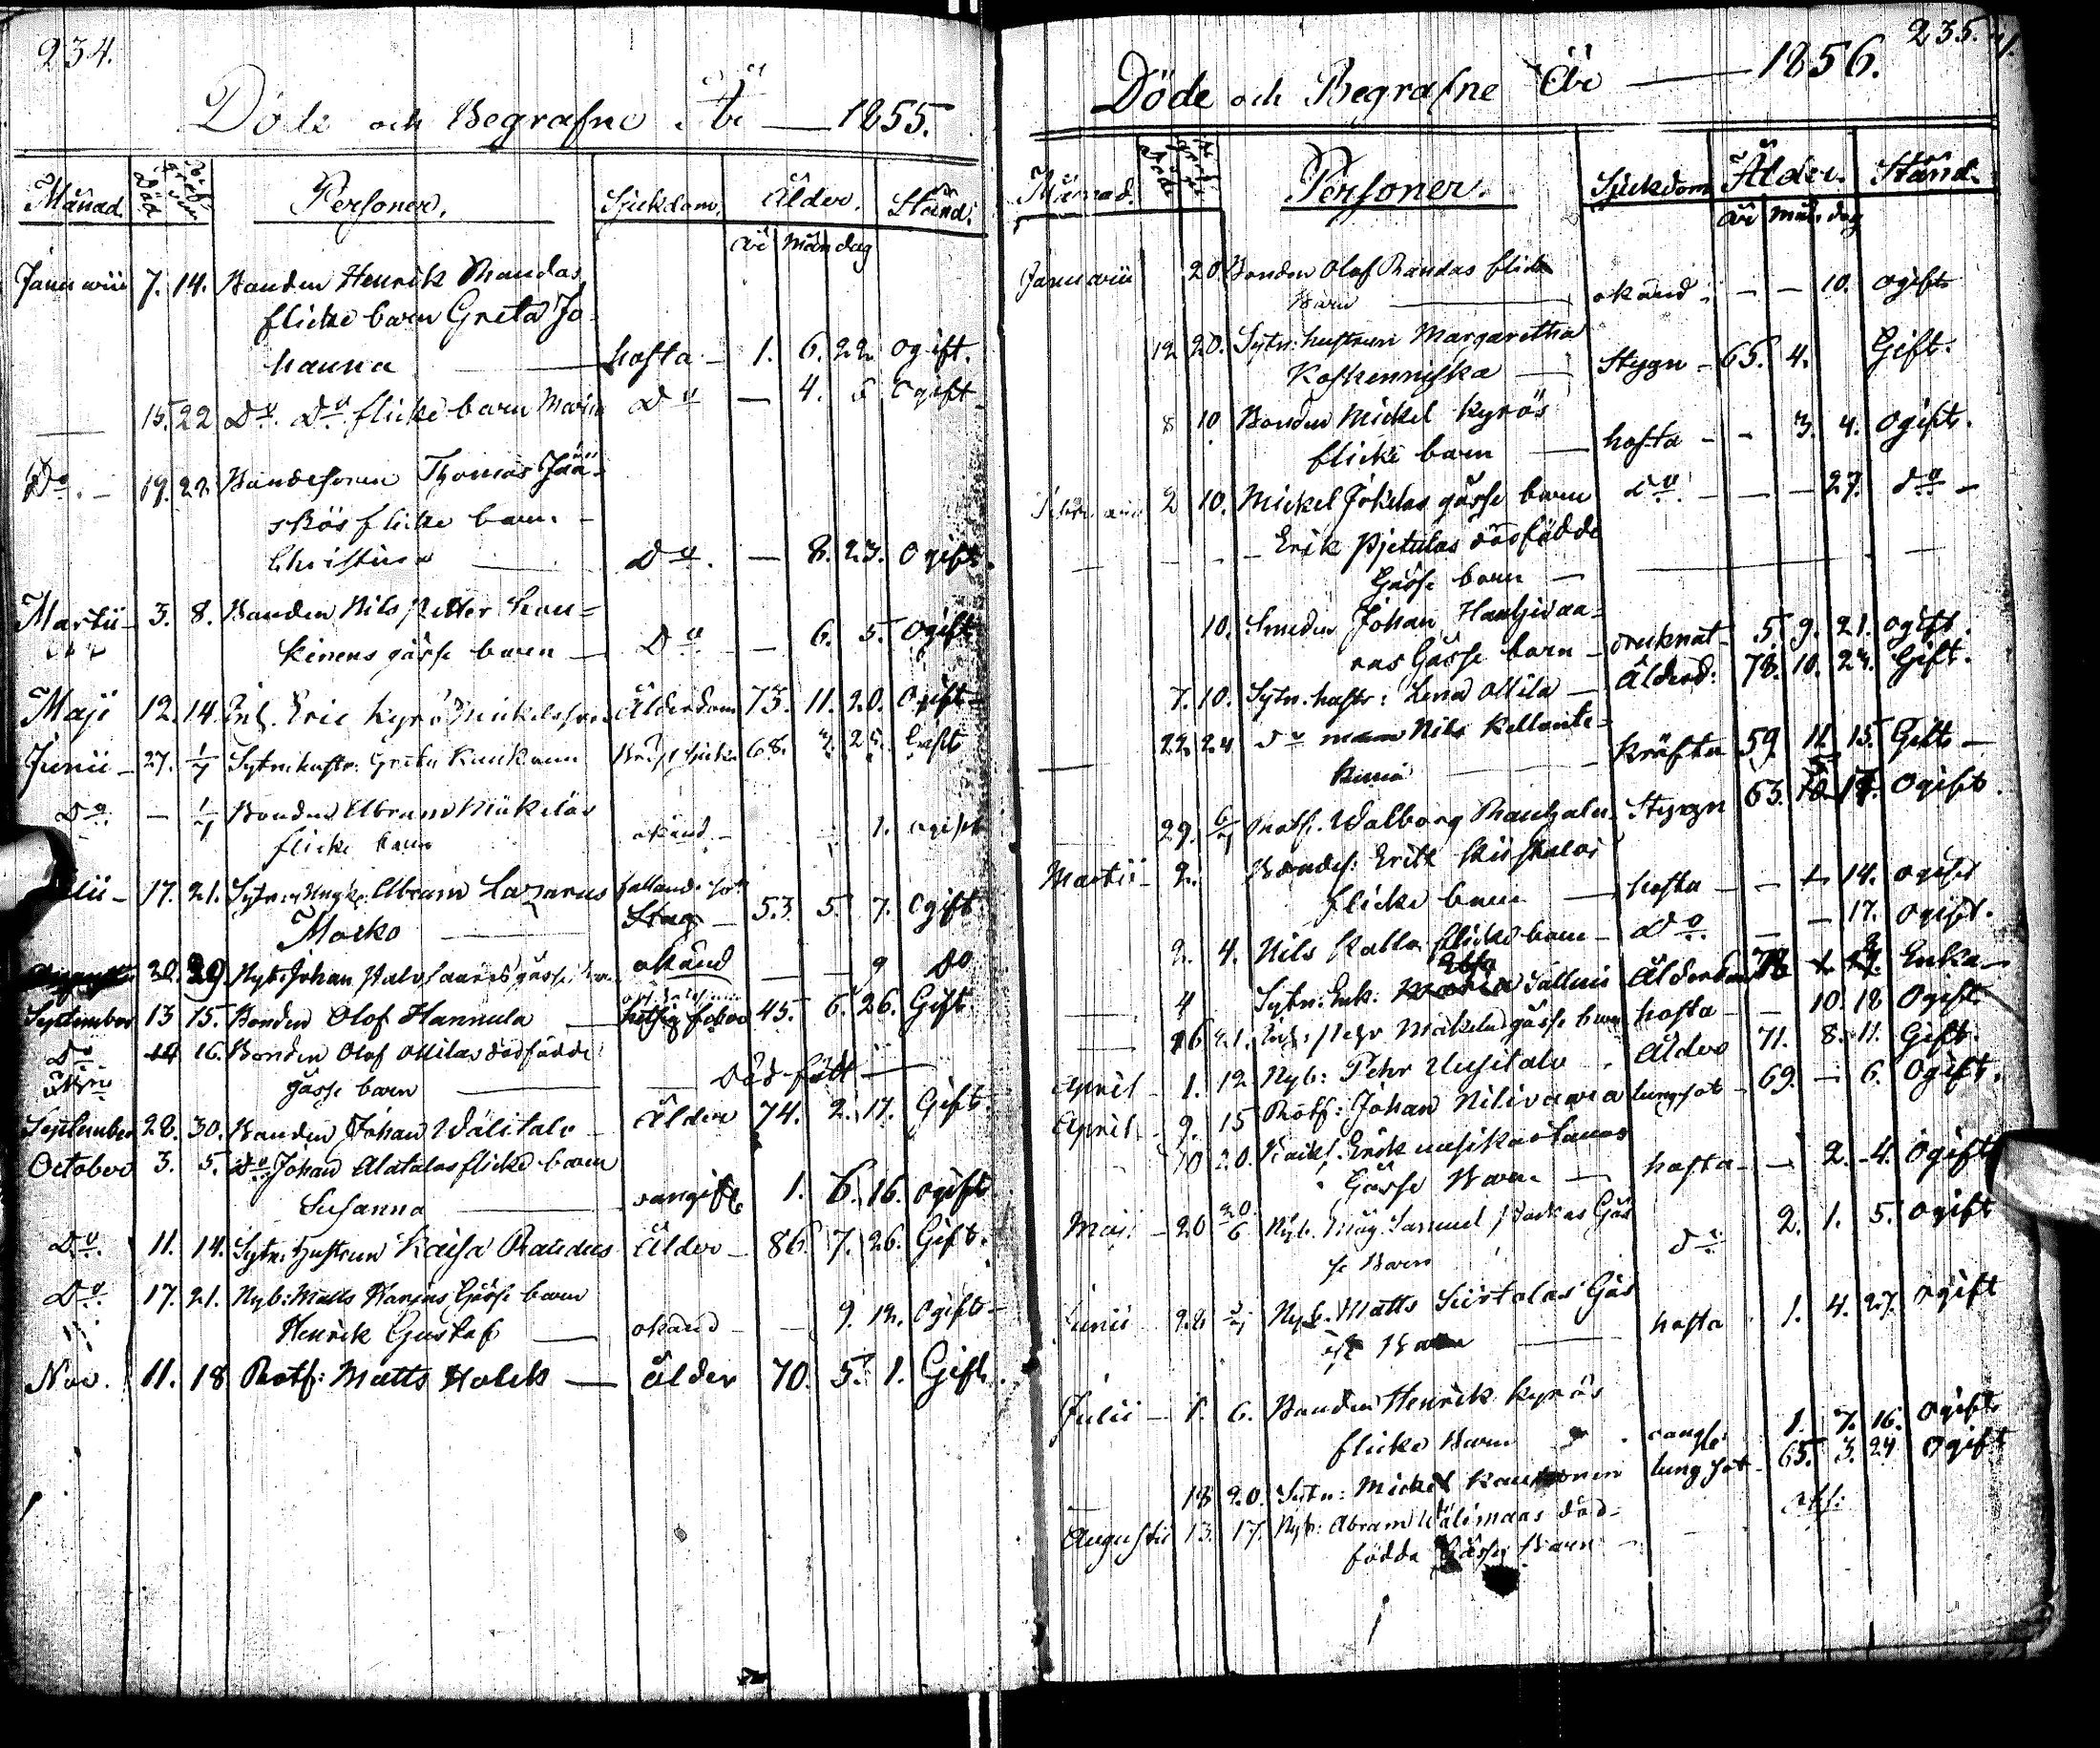 234.
Döde och Begrafne År 1855.
Månad. Död Begrafven Personer. Sjukdom. Ålder. Stånd.
År Mån dag
Januarii 7. 14. Bonden Henrik Raudas
flicke barn Greta Jo-
hanna hosta 1. 6. 22. ogift.
15. 22 Do. Do. flicke barn Maria Do 4. 5 Ogift
Do. 19. 22 Bondesonen Thomas Jää-
skös flicke barn
Christina Do. 8. 23. Ogift.
Martii 3. 8. Bonden Nils Petter Lou=
kinens gåsse barn Do 6. 5. Ogift
Maji 12. 14. Inh. Eric Kyrö Ålderdom 73. 11. 20. Ogift
Junii 27. 1/7 Sytn. hustr. Greta 68. Gift
Do. 1/7 Bonden Abram Mickelas
flicke barn okänd 1. ogift
17. 21. Sytn. Abram Lazarus fallande sot
Marko Slag 53. 5. 7. Ogift
30. 29. Nyb. Johan gåsse okänd 9 Do
September 13 15. Bonden Olof Hannula hetsig feber 45. 6. 26. Gift
Do 14 16. Bonden Olof Ollilas dödfödde
gåsse barn Död född
September 28. 30. Bonden Johan Wälitalo Ålder 74. 2. 17. Gift.
October 3. 5. Do Johan Alatalos flicke barn
Susanna 1. 6. 16. ogift
Do. 11. 14. Sytn. hustrun Kaisa Raudus Ålder 86. 7. 26. Gift.
Do. 17. 21. Nyb: Matts Gåsse barn
Henrik Gustaf okänd 9. 12. Ogift
Nov. 11. 18 Rotf: Matts Holck ålder 70. 5. 1. Gift.
235.
Döde och Begrafne År 1856.
Månad. Personer. Sjukdom Ålder. Stånd.
År Mån dag
Januarii 20. Bonden Olof Raudas flicke
Barn okänd 10. ogift
12 20. Sytn: hustrun Margaretha
Koskenniska Stygn 65. 4. Gift.
8 10 Bonden Mickel Kyrös
flicke barn hosta 3. 4. Ogift.
2 10. Mickel Jokelas gåsse barn Do. 27. do
Erik Pjetulas dödfödde
Gåsse barn
10. Smeden Johan Hanhivaa-
ras Gåsse barn druknat 5. 9. 21. ogift.
7. 10. Sytn. hustr: Lena Ollila Ålderd: 78. 10. 24. Gift.
22. 24 do man Nils Kellonte-
kräfta 59 11 15. Gift
29. 6/ Rotf. Walborg Stygn 63. Ogift.
Martii 2. Bondes: Erik
flicke barn hosta 14. ogift
2. 4. Nils Kalla flicke barn Do. 17. ogift.
4 Sytn: Enk: Ebba Salluis Ålderdom Enka
16 21. Mäkelas gåsse barn hosta 10. 18 Ogift
April 1. 12 Nyb: Pehr Uusitalo Ålder 71. 8. 11. Gift.
April 9. 15 Rotf: Johan Nilivaara lungsot 69. 6. Ogift.
10 20. Erik
Gåsse Barn hosta 2. 4. Ogift
Maji 20 20/6 Nyb. Samuel Gås
se Barn do 2. 1. 5. Ogift
Junii 28 Nyb. Matts Siirtalas Gås
se Barn hosta 1. 4. 27. ogift
Julii 1. 6. Bonden Henrik Kyrös
flicke Barn 1. 7. 16. Ogift
18 20. Sytn: Mickel lungsot 65. 3. 24 Ogift
Augusti 13. 17. Nyb: Abram Wälimaas död-
födda Gåsse Barn